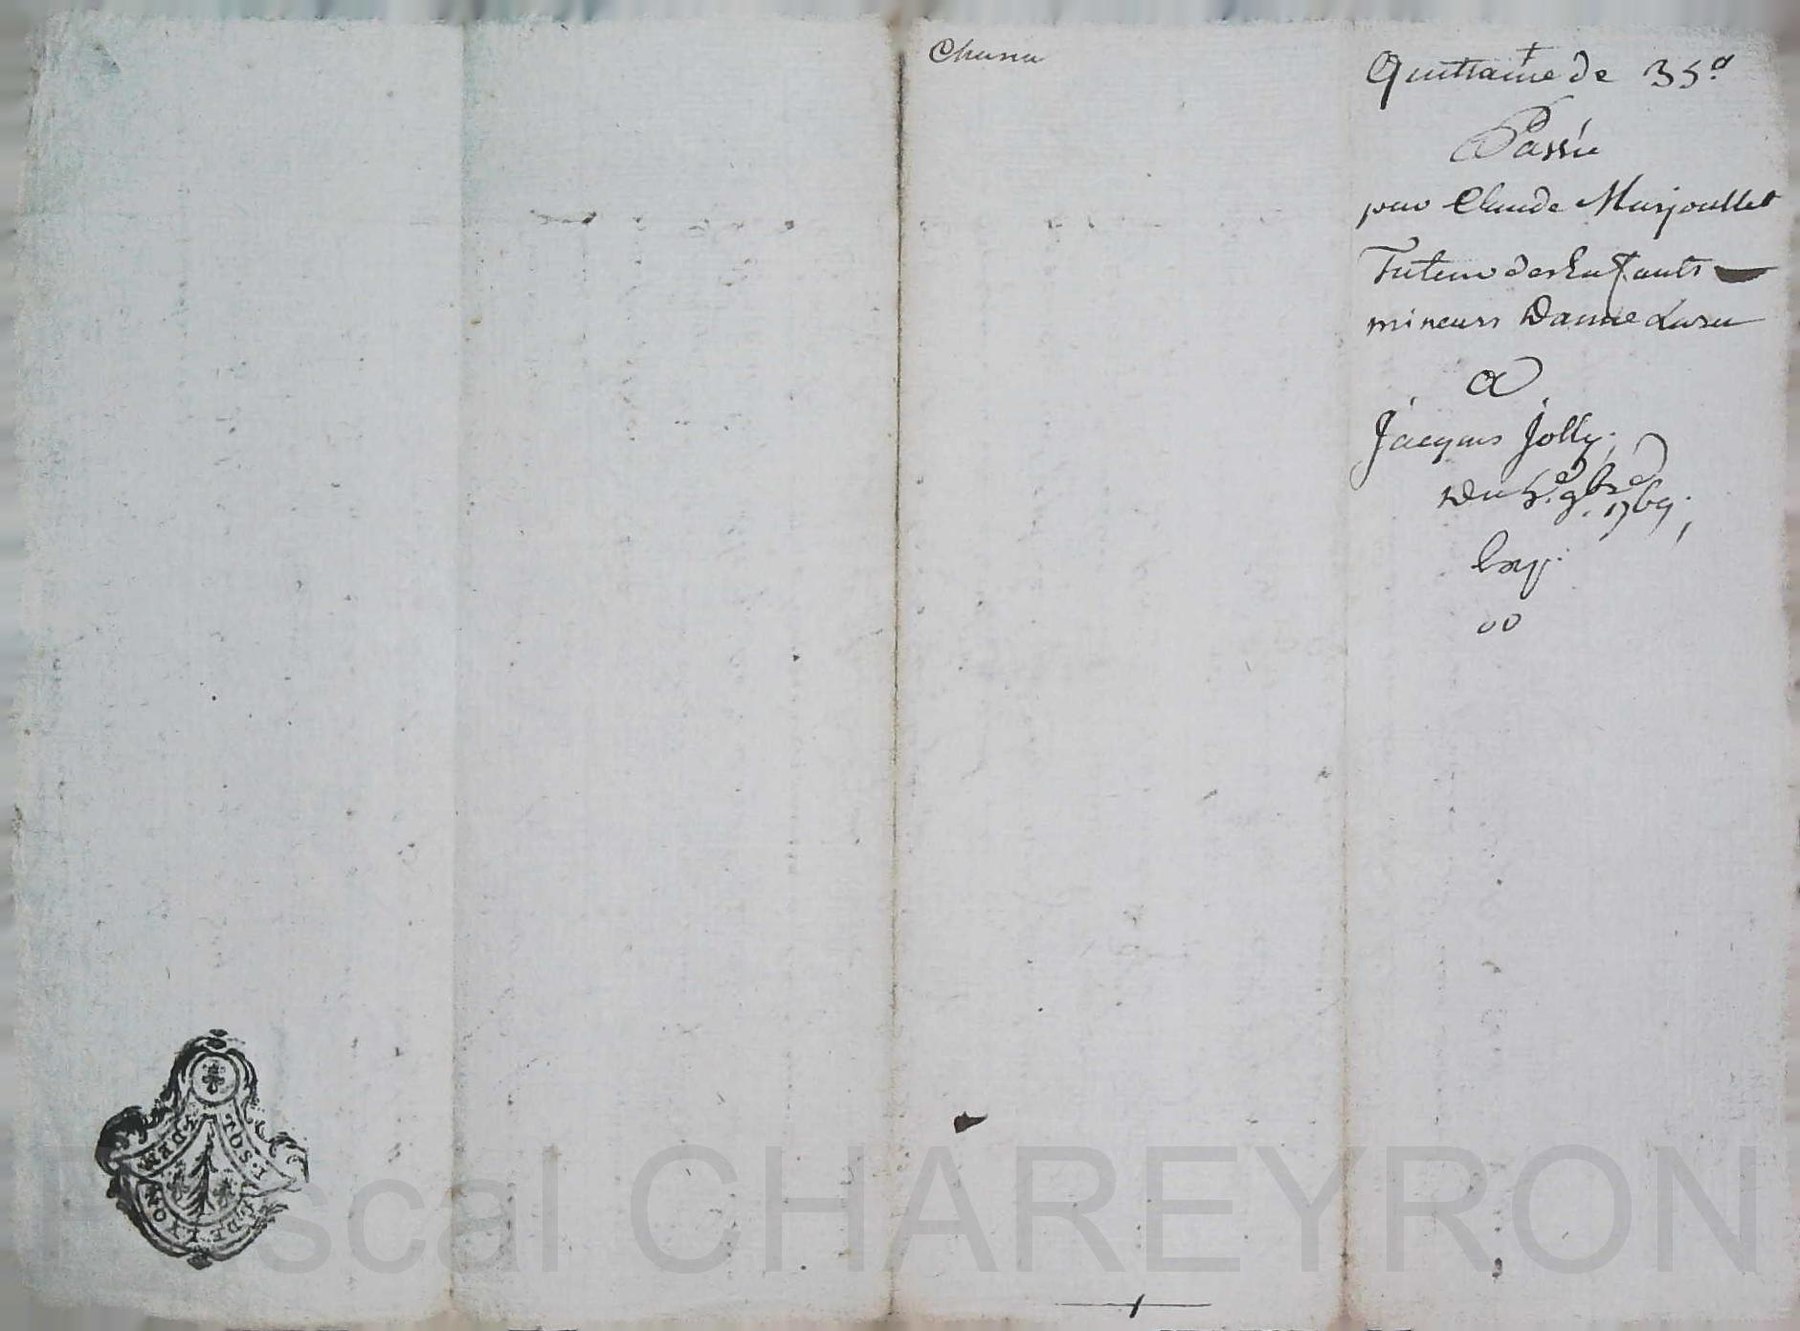 Chusin
Quittance de 35.#
Passée
par Claude Marjoullet
Tuteur des Enfants
mineurs Danne Lare
a
Jacques Jolly,
Du 5.e 9bre 1769,
Exp.
DE LYON
Pascal CHAREYRON